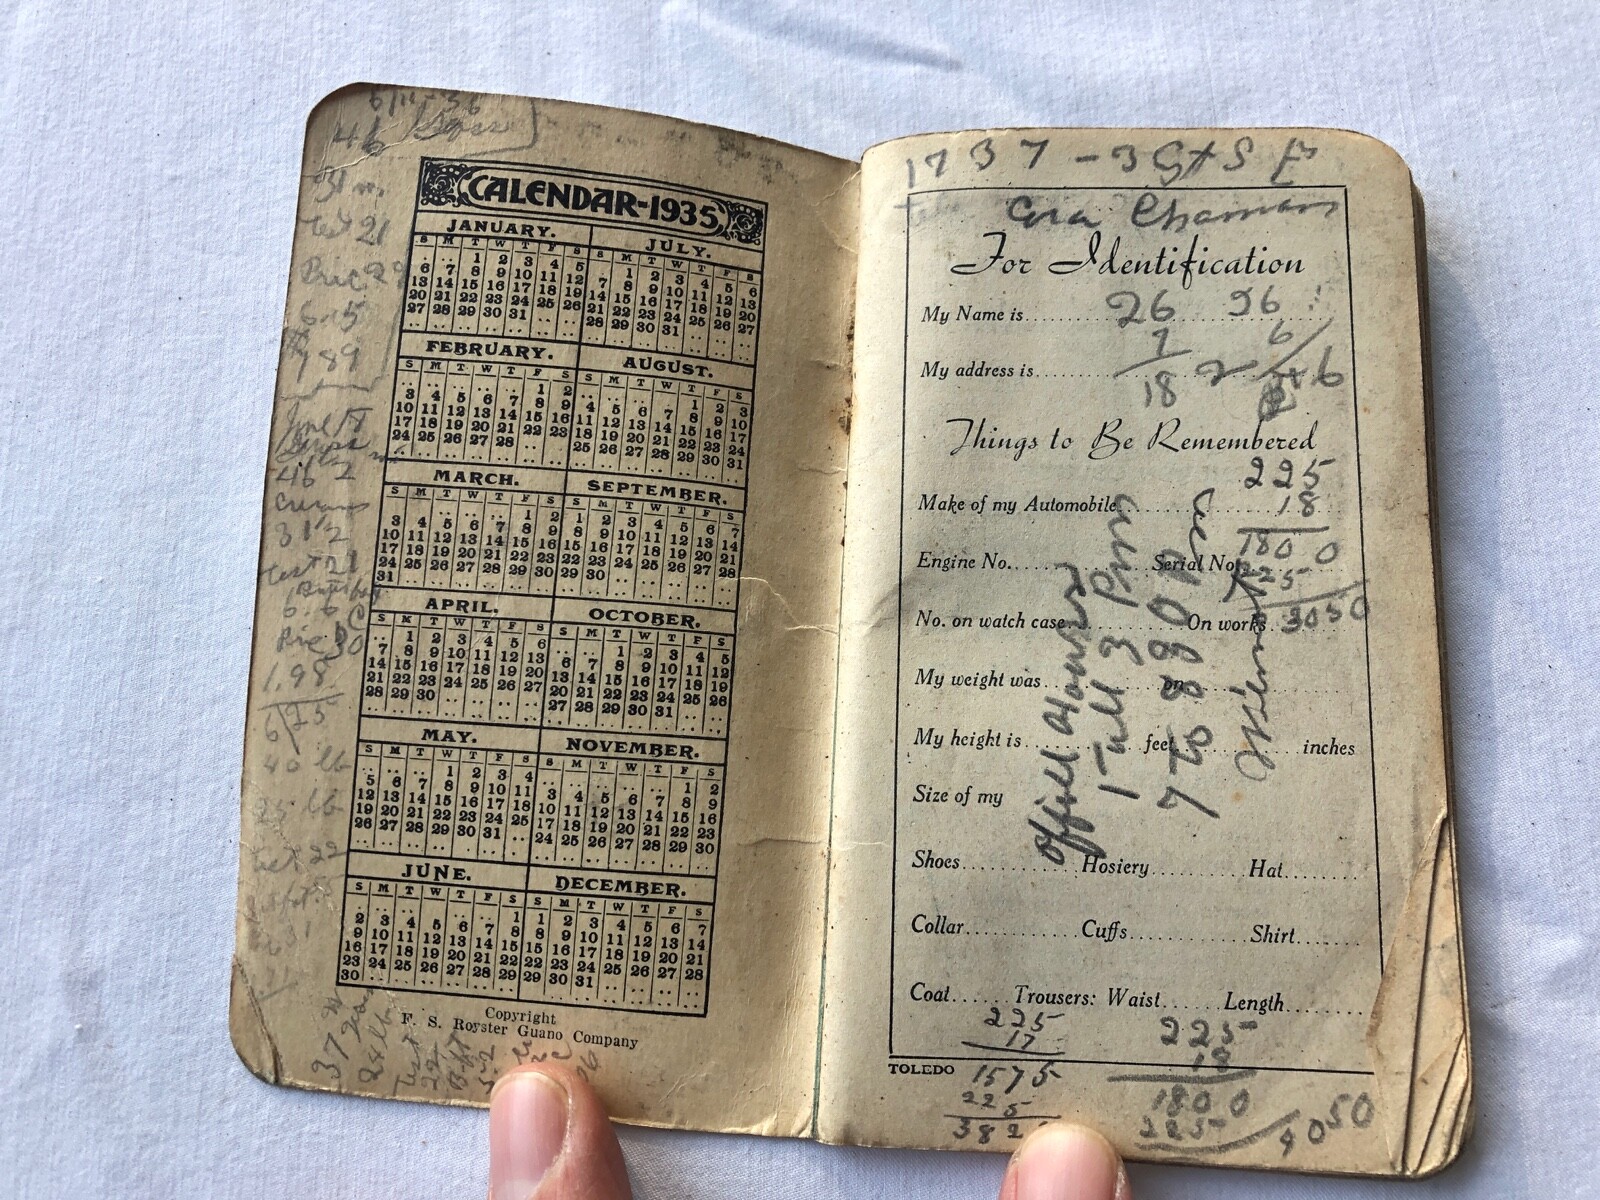 6/11-36
46
31
Test 21
Price 29
6.15
$
1 89
June 18
46 2
Cream
312
Test 21
6.6
Price 30
1.98
6/25
40 lb
25 lb
Test 22
CALENDAR-1935
JANUARY.
S M T W T F S
.. .. 1 2 3 4 5
6 7 8 9 10 11 12
13 14 15 16 17 18 19
20 21 22 23 24 25 26
27 28 29 30 31 .. ..
FEBRUARY.
S M T W T F S
.. .. .. .. .. 1 2
3 4 5 6 7 8 9
10 11 12 13 14 15 16
17 18 19 20 21 22 23
24 25 26 27 28 .. ..
MARCH.
S M T W T F S
.. .. .. .. .. 1 2
3 4 5 6 7 8 9
10 11 12 13 14 15 16
17 18 19 20 21 22 23
24 25 26 27 28 29 30
31 .. .. .. .. .. ..
APRIL.
S M T W T F S
.. 1 2 3 4 5 6
7 8 9 10 11 12 13
14 15 16 17 18 19 20
21 22 23 24 25 26 27
28 29 30 .. .. .. ..
MAY.
S M T W T F S
.. .. .. 1 2 3 4
5 6 7 8 9 10 11
12 13 14 15 16 17 18
19 20 21 22 23 24 25
26 27 28 29 30 31 ..
JUNE.
S M T W T F S
.. .. .. .. .. .. 1
2 3 4 5 6 7 8
9 10 11 12 13 14 15
16 17 18 19 20 21 22
23 24 25 26 27 28 29
30 .. .. .. .. .. ..
JULY.
S M T W T F S
.. 1 2 3 4 5 6
7 8 9 10 11 12 13
14 15 16 17 18 19 20
21 22 23 24 25 26 27
28 29 30 31 .. .. ..
AUGUST.
S M T W T F S
.. .. .. .. 1 2 3
4 5 6 7 8 9 10
11 12 13 14 15 16 17
18 19 20 21 22 23 24
25 26 27 28 29 30 31
SEPTEMBER.
S M T W T F S
1 2 3 4 5 6 7
8 9 10 11 12 13 14
15 16 17 18 19 20 21
22 23 24 25 26 27 28
29 30 .. .. .. .. ..
OCTOBER.
S M T W T F S
.. .. 1 2 3 4 5
6 7 8 9 10 11 12
13 14 15 16 17 18 19
20 21 22 23 24 25 26
27 28 29 30 31 .. ..
NOVEMBER.
S M T W T F S
.. .. .. .. .. 1 2
3 4 5 6 7 8 9
10 11 12 13 14 15 16
17 18 19 20 21 22 23
24 25 26 27 28 29 30
DECEMBER.
S M T W T F S
1 2 3 4 5 6 7
8 9 10 11 12 13 14
15 16 17 18 19 20 21
22 23 24 25 26 27 28
29 30 31 .. .. .. ..
Copyright
F. S. Royster Guano Company
37
Test
22
1737 - 3 St S E
Cora
For Identification
My Name is
26 26
7 6
My address is
18 2
Things to Be Remembered
225
18
Make of my Automobile
1800
225
Engine No. Serial No.
3050
No. on watch case On works
My weight was on
My height is feet inches
Size of my
Shoes Hosiery Hat
Collar Cuffs Shirt
Coat Trousers: Waist Length
1 till 3 P m
7 to 8 30 P m
225
17
1575
225
382
225
18
1800
225
4050
TOLEDO